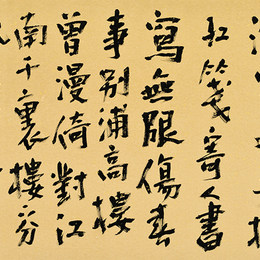 紅箋寄人書
寫無限傷春
事別浦高樓
曾漫倚對江
南千裏樓分